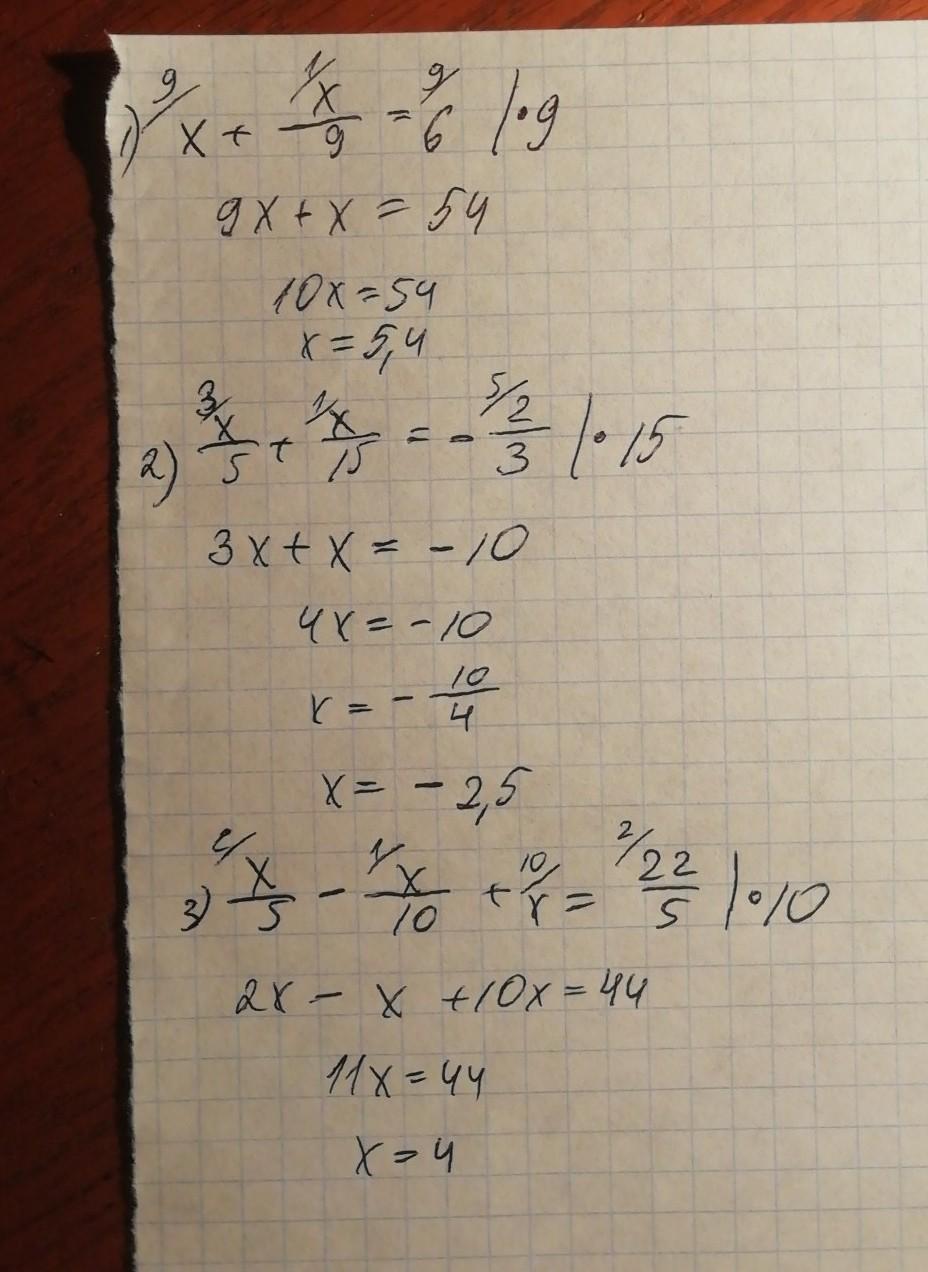 1) ⁹/x + ¹/x/9 = ⁹/6 | • 9
9x + x = 54
10x = 54
x = 5,4
2) ³/x/5 + ¹/x/15 = - ⁵/2/3 | • 15
3x + x = - 10
4x = - 10
x = - 10/4
x = - 2,5
3) ²/x/5 - ¹/x/10 + ¹⁰/x = ²/22/5 | • 10
2x - x + 10x = 44
11x = 44
x = 4